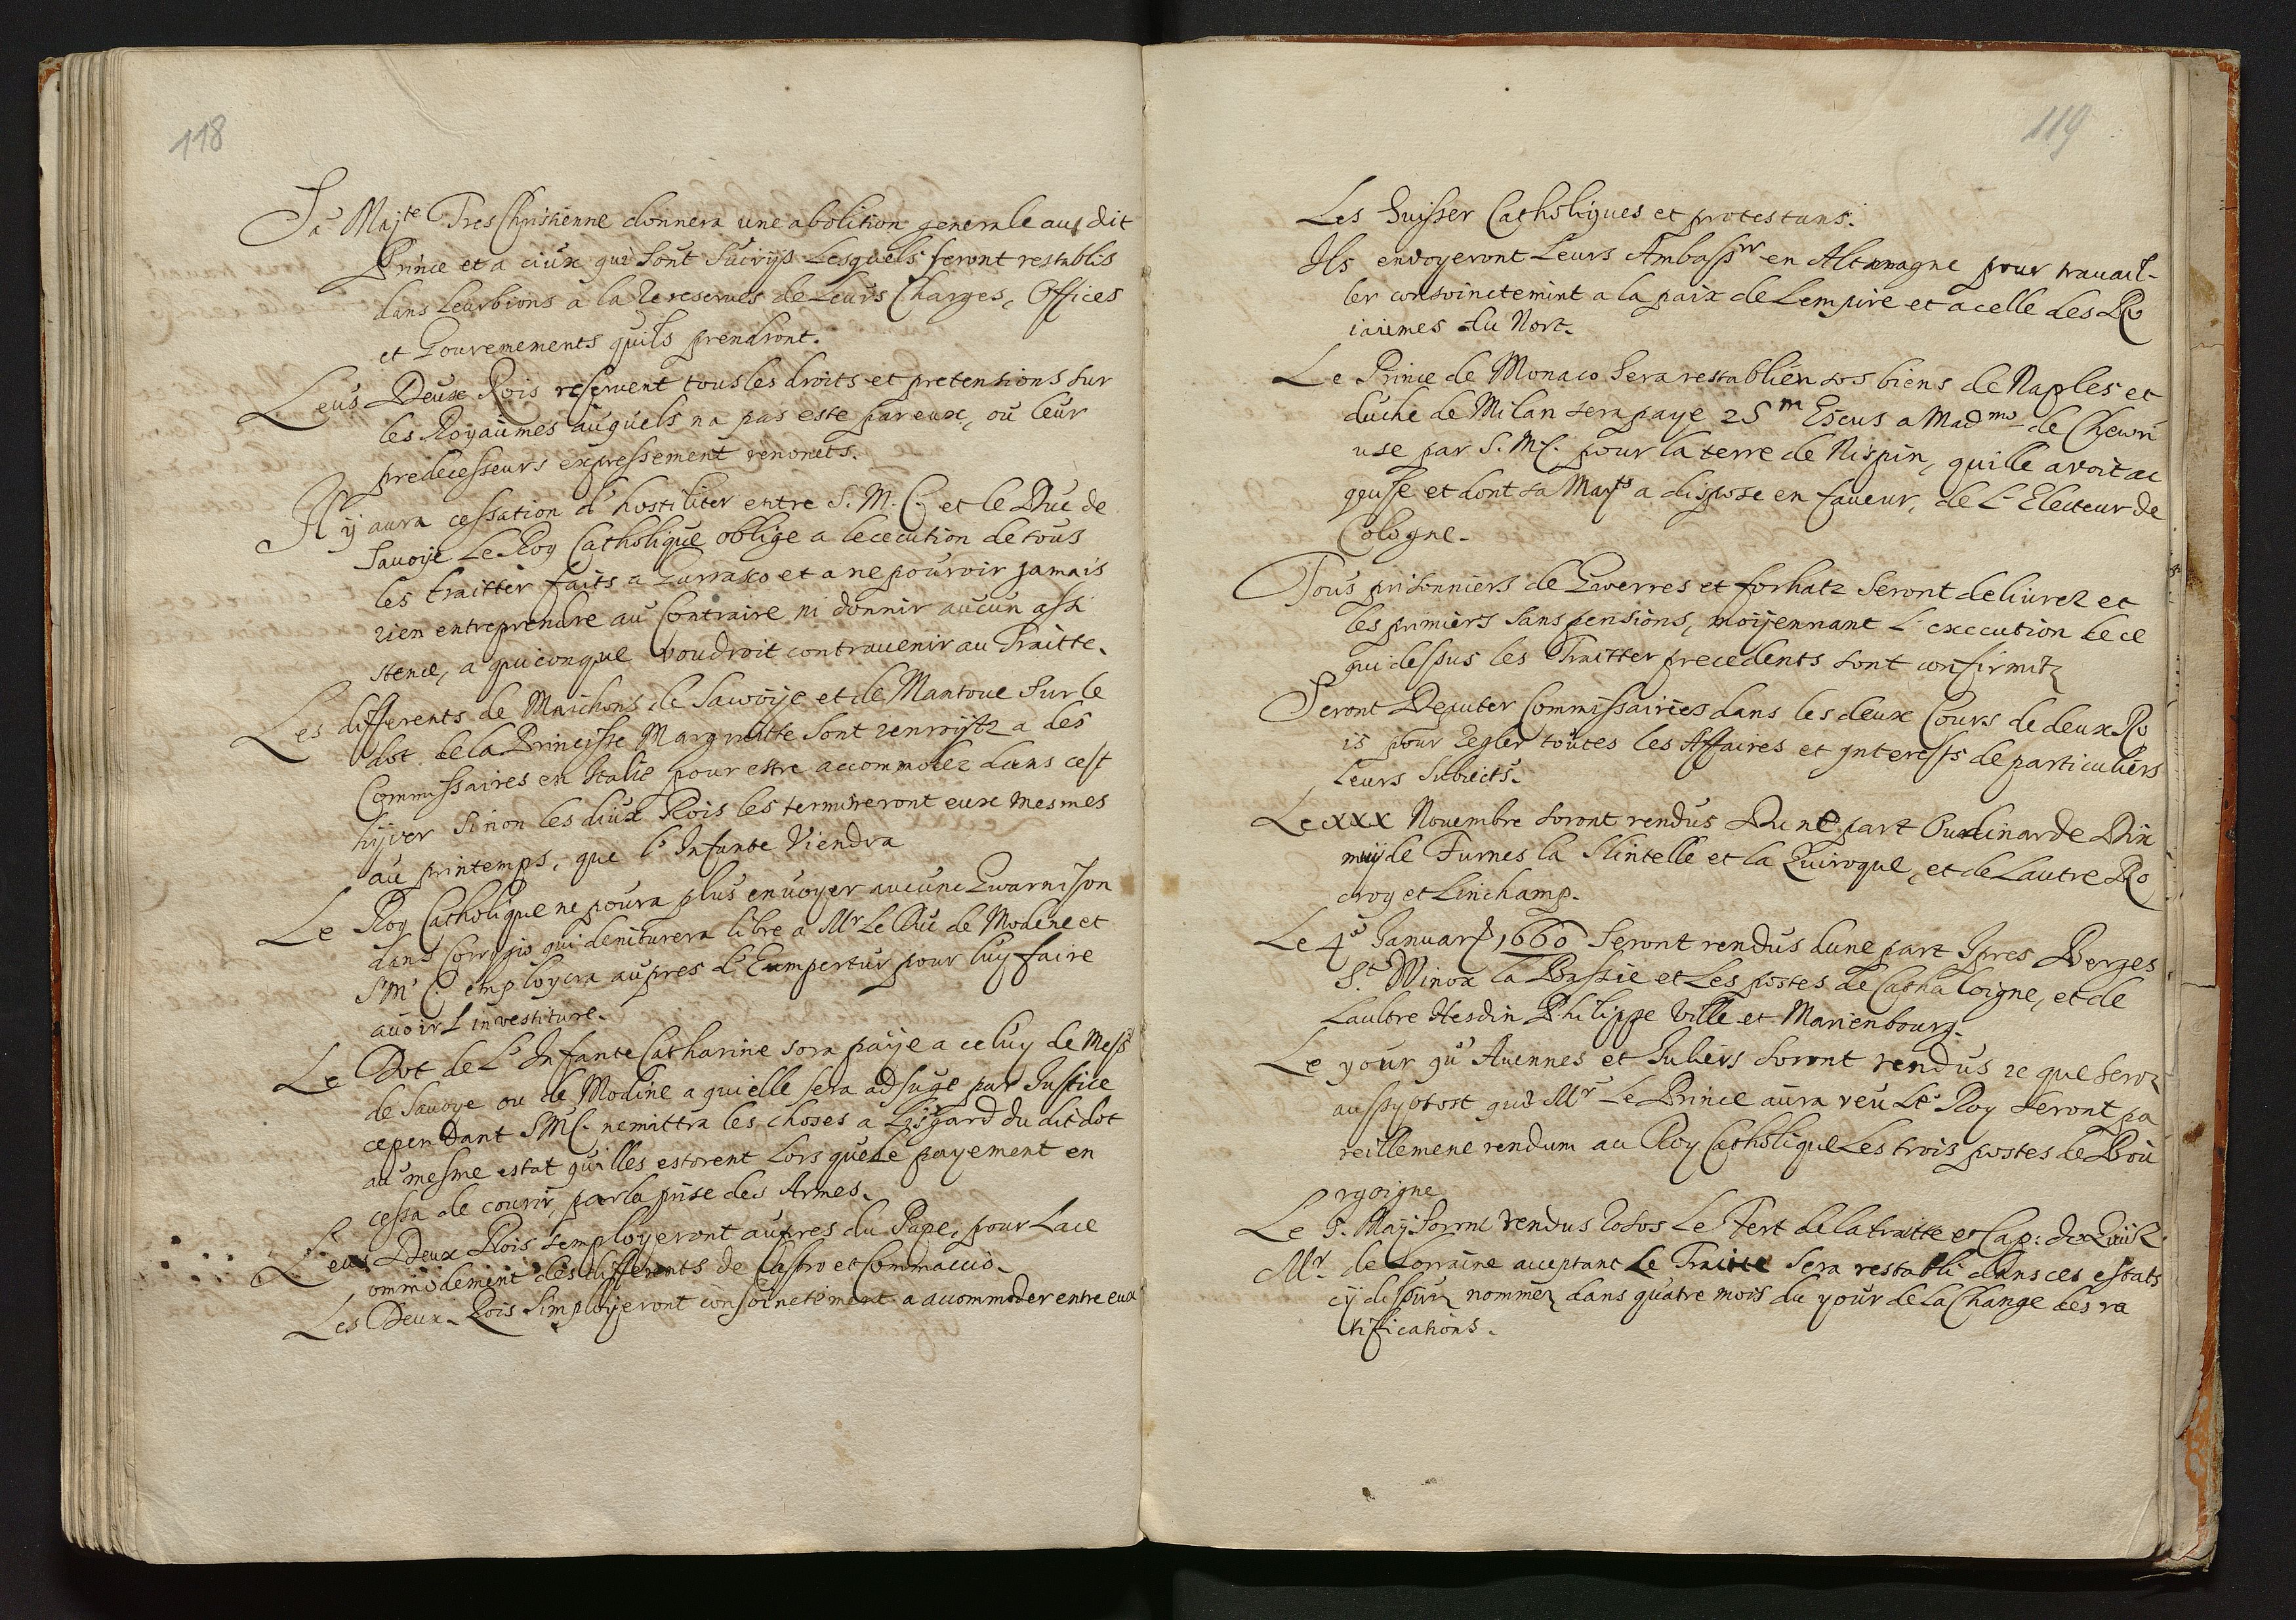 118
Sa Maj.te Tres Chrisitienne donnera une abolition generale audit
Prince et a ceux qui sont suivys Lesquels seront restablis
dans Leurbiens a la Rereserves de Leurs Charges, Offices
et Gouvernements quils prendront.
Leus Deux Rois reservent tous les droits et pretensions sur
les Royaumes auquels na pas este par eux, ou leur
predecesseurs expressement renoncts.
Il y aura cessation d'hostiliter entre S. M. C. et le Duc de
Savoije Le Roy Catholique oblige a lececution de tous
les traitter faits a Gurrasco et a ne pouvoir jamais
rien entreprendre au Contraire ni donnir aucun assi
stence, a quiconque voudroit contravenir au Traitte.
Les differents de Maichons de Savoije et de Mantoue Sur le
dot de la Princisse Margueritte sont renvoijtz a des
Commissaires en Italie pour estre accommodez dans cest
hijver Sinon les diux Rois les termineront eux mesmes
au printemps, que l'Infante Viendra
Le Roy Catholique ne poura plus envoyer aucune Gwarnison
dans Corregio qui demiturera libre a Mr Le Duc de Modene et
S M C. employera aupres l'Eumpertur pour luy faire
avoir L'investiture.
Le Dot de L'Infante Catharine sora paije a celuy de Mess.rs
de Savoye ou de Modine a qui elle sera adjuge par Justice
cependant S M C. nemittra les choses a L'isgard du dit dot
au mesme estat quilles estorent Lors que Le payement en
cessa de courir, par la prise des Armes.
Leus Deux Rois semployeront aupres du Pape, pour Lacc
ommodement des differents de Castro et Commaccio.
Les Deux Rois Simployeront consoinctement a accommoder entre eux
119
Les Suisser Catholiques et protestans.
Ils envoyeront Leurs Ambass.rr en Allemagne pour travail-
ler consoinctemint a la paix de Lempire et a celle des Ro
iaumes du Nort.
Le Prince de Monaco Sera restabli en sos biens de Naples et
duche de Milan sera paye 25m Escus a Mad.me de Chewri
use par S. M C. pour la terre de Rispin, quille avoit ac
quise et dont sa Maj.ts a dispose en faveur, de L'Electeur de
Cologne.
Tous prisonniers de Gwerres et forhatz Seront delivrez et
les primiers sans pensions, moijennant L'execution de ce
qui dessus les Traitter precedents sont confirmitz
Seront Deputer Commissairies dans les deux Cours de deux Ro
is pour Regler toutes les Affaires et Interests de particuliers
Leurs Subiects.
Le XXX Novembre soront rendus Dune part Oudinarde Dix
muijde Furnes la Slintelle et la Quiroque, et de Lautre Ro
croy et Linchamp.
Le 4.e Januarÿ 1660 Seront rendus dune part Ipres Berges
S.t Winox la Bassie et Les postes de Cathaloigne, et de
Laultre Hesdin Philippe Ville et Marienbourg.
Le your qu' Avennes et Juliers soront rendus ce que sero
aussyotost que Mr Le Prince aura veu Le Roy seront pa
reillemene rendum au Roy Catholique Les trois postes de Bou
rgoigne
Le 5. Maij Soront rendus Rosos Le Fert de la traitte et Cap: de Quiz
Mr. de Lorraine acceptant Le Traitte Sera restabli dans ces estats
cij dessurz nommez dans quatre mois du your de La Change des ra
tifications.